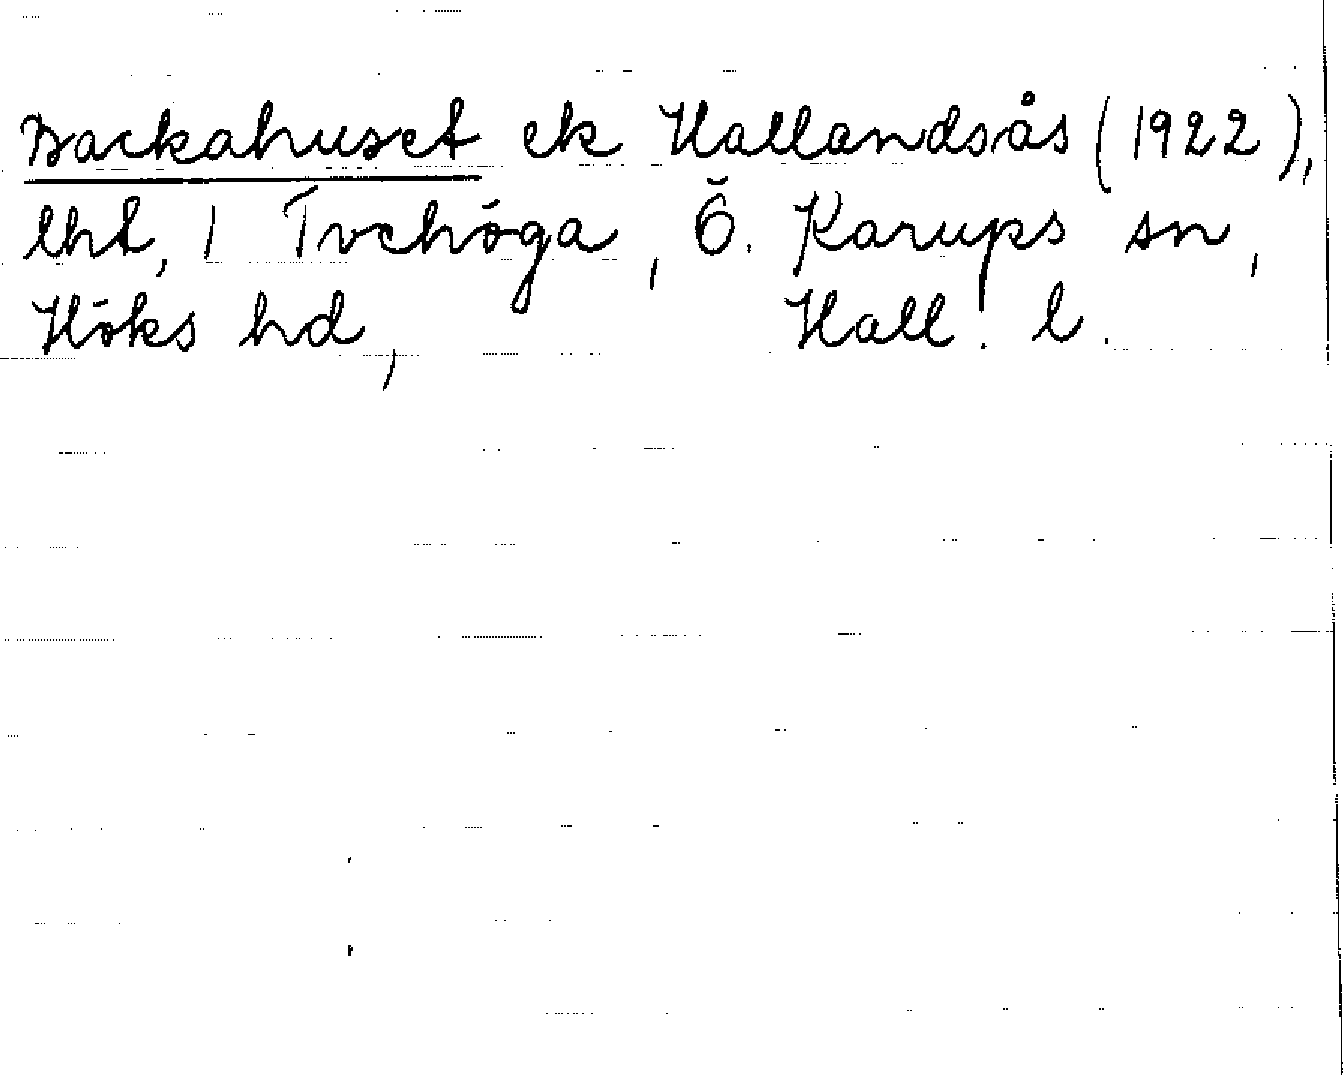 Backahuset ek Hallandsås (1922),
lht, 1 Tvehöga, Ö. Karups sn,
Höks hd, Hall. l.